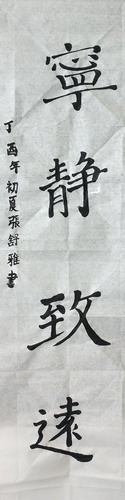 寧靜致遠
丁酉年初夏張舒雅書